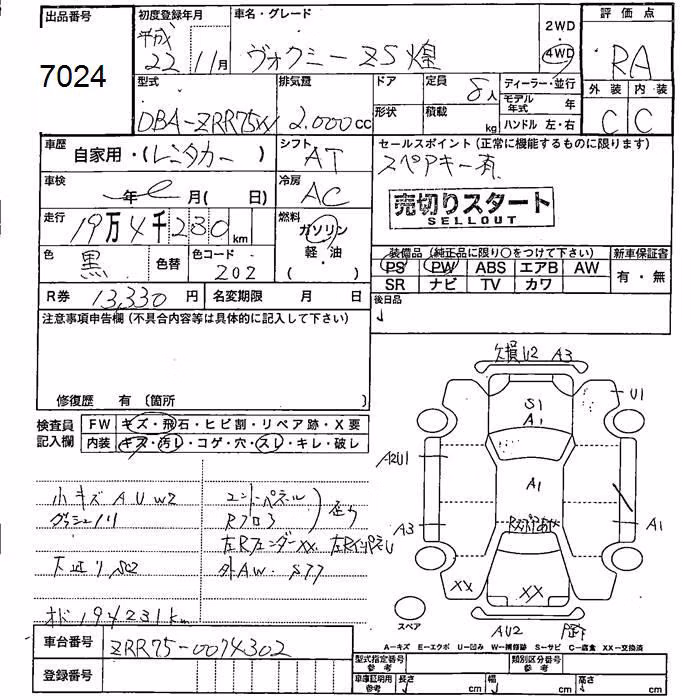 出品番号
7024
初度登録年月
平成
22 11月
車名・グレード
ヴォクシー ZS 煌
2WD
4WD
評価点
RA
外装 内装
C C
型式
DBA-ZRR75W
排気量
2.000cc
ドア
形状
定員
8人
積載
kg
ディーラー・並行
モデル年式 年
ハンドル 左・右
車歴
自家用・(レンタカー)
シフト
AT
セールスポイント(正常に機能するものに限ります)
スペアキー有
車検
年 月( 日)
冷房
AC
売切りスタート
SELLOUT
走行
19万4千230km
燃料
ガソリン
軽・油
( )
色
黒
色替
色コード
202
装備品(純正品に限り○をつけて下さい)
新車保証書
PS PW ABS エアB AW
SR ナビ TV カワ
有・無
R券 13,330円
名変期限 月 日
後日品
注意事項申告欄(不具合内容等は具体的に記入して下さい)
修復歴 有 〔箇所 〕
検査員
記入欄
FW キズ・飛石・ヒビ割・リペア跡・X要
内装 キズ・汚レ・コゲ・穴・スレ・キレ・破レ
小キズ A U W2
下廻り S2
オド 194231km
左Rフェンダー XX
外AW. S77
欠損 U2 A3
U1
S1
A1
A2U1
A1
A3
A1
XX
XX
AU2
スペア
車台番号
ZRR75-0074302
登録番号
A-キズ E-エクボ U-凹み W-補修跡 S-サビ C-腐食 XX-交換済
型式指定番号
参考
類別区分番号
参考
車庫証明用
参考
長さ cm 幅 cm 高さ cm